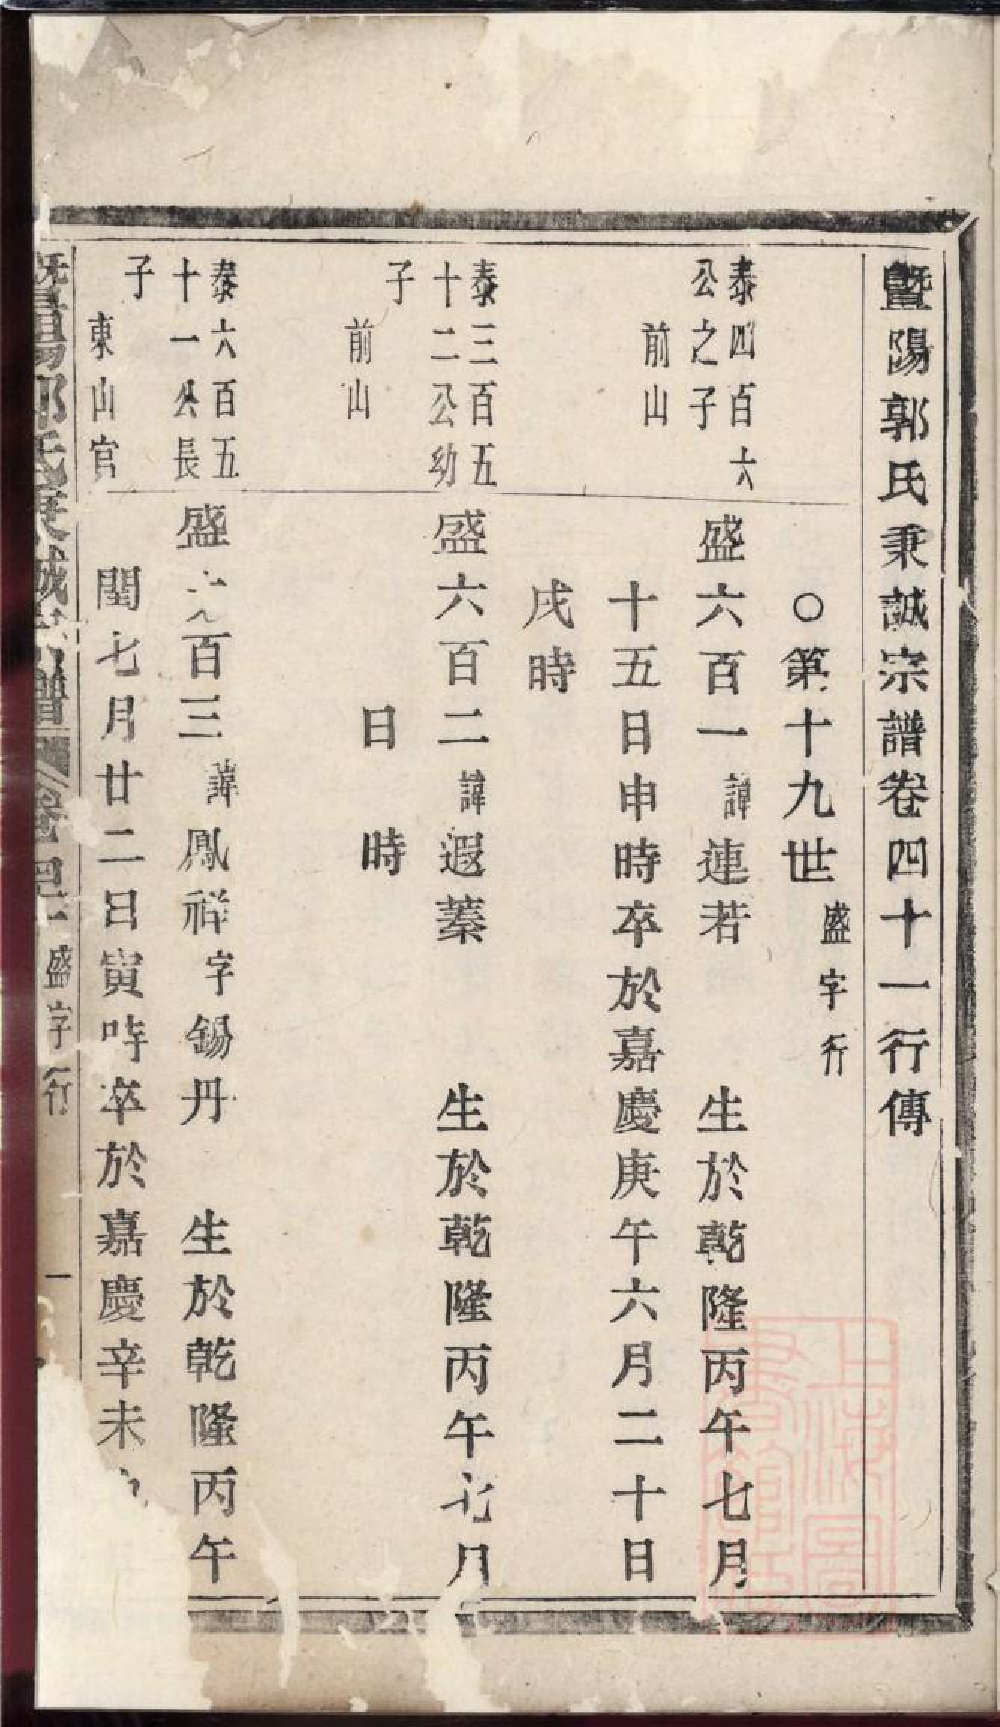 暨陽郭氏秉誠宗譜卷四十一行傳
○第十九世 盛字行
泰四百六
公之子
前山
盛六百一 諱連若 生於乾隆丙午七月
十五日申時卒於嘉慶庚午六月二十日
戌時
泰三百五
十二公幼
子
前山
盛六百二 諱遐蓁 生於乾隆丙午七月
日 時
泰六百五
十一公長
子
東山官
盛六百三 諱鳳祥 字錫丹 生於乾隆丙午
閏七月廿二日寅時卒於嘉慶辛未
暨陽郭氏秉誠宗譜 卷四十一 盛字行 一
上海圖書館藏